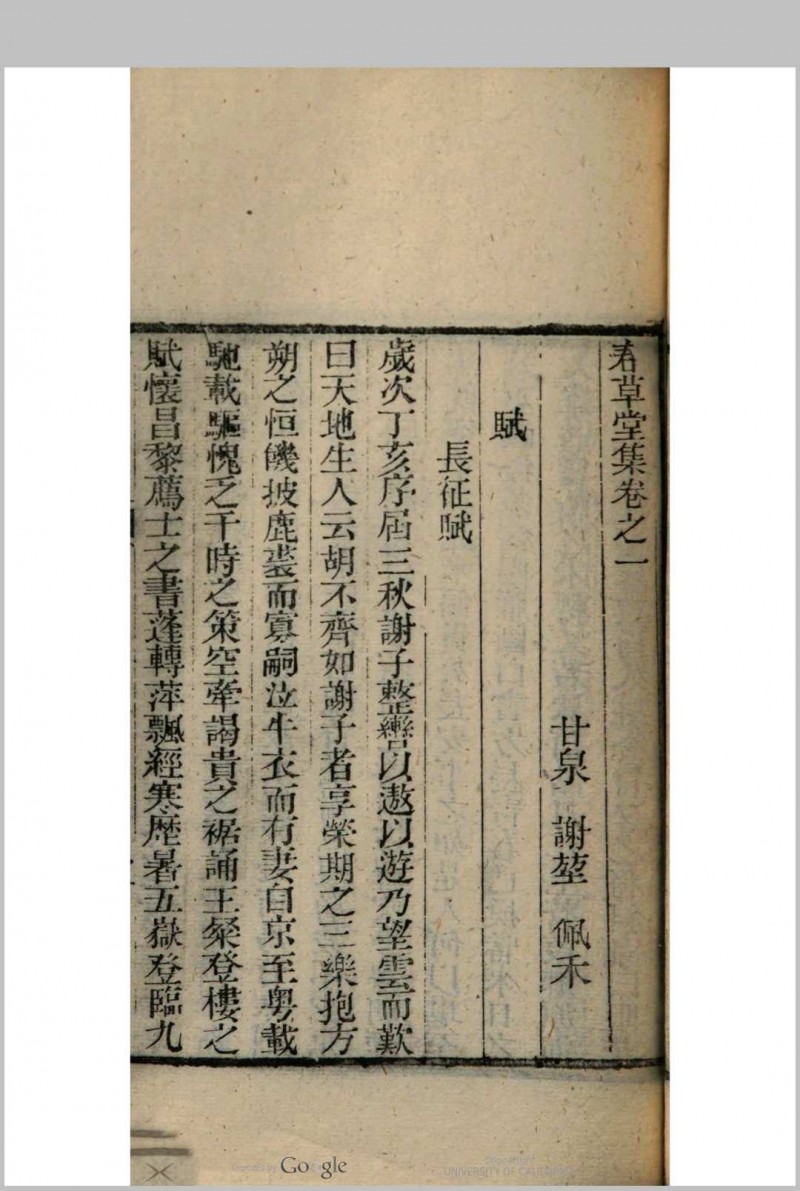 春草堂集卷之一
甘泉 謝堃 佩禾
賦
長征賦
歲次丁亥序屆三秋謝子整轡以遨以遊乃望雲而歎
曰天地生人云胡不齊如謝子者享榮期之三樂抱方
朔之恒饑披鹿裘而寡嗣泣牛衣而有妻自京至粤載
馳載驅愧乏干時之策空牽謁貴之裾誦王粲登樓之
賦懷昌黎薦士之書蓬轉萍飄經寒歷暑五嶽登臨九
Google
UNIVERSITY OF CALIFORNIA